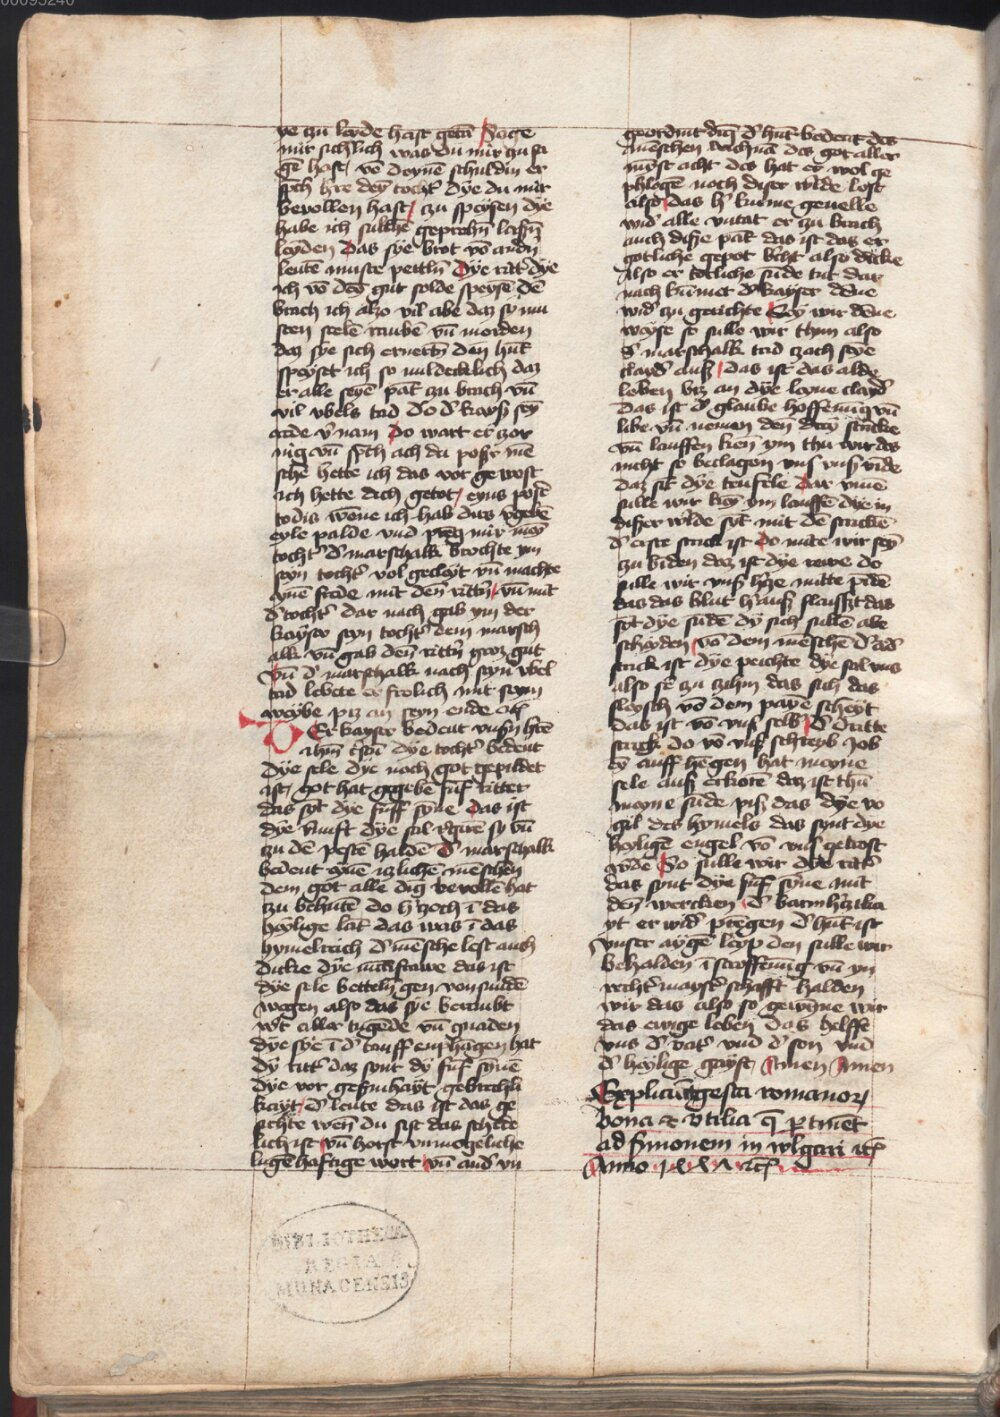 00095240
ye zu leyde hast getā Sage
mir sichlich was du mir zu sa
gē hast vō deynē schuldin er
sp̄ch h're deȳ tocht' dye du mir
bevollen hast zu speysen dye
habe ich sulchē geprechn̄ lasn̄
leyden Das sye brot vō andn̄
leutē muste pettln̄ Dye ritt' dye
ich vō deȳ gut solde speysē dē
brach ich also vil abe daz sy mu
sten stelē raubē vn̄ morden
daz sye sich ernertn̄ den hūt
speyset ich so mildecklich daz
er alle seyē pāt zu brach vn̄
vil vbels tad Do d' kays' seȳ
rede v'nam Do wart er zor
nig vn̄ sp̄ch ach du poser mē
sche hette ich das vor gewost
ich hette dich getot eyns poser
todis wēne ich hab dirs v'gebē
eyle palde vnd preng mir meȳ
tocht' d' marschalk brochte ym
seyn tocht' vol gecleyt vn̄ machte
eynē frede mit den rittn̄ vn̄ mit
d' tocht' dar nach gab ym der
kayser seyn tocht' dem marsch
alk vn̄ gab den rittn̄ groz gut
vn̄ d' marschalk nach seyn vbel
tad lebete er frolich mit seym
weybe piz an seyn ende etc̄
Der kayser bedeut vnsn̄ h'rē
ihm̄ c'stū dye tocht' bedeut
dye sele dye noch got gepildet
ist got hat gegebē funf ritter
das synt dye funff synē Das ist
dye v'nuft dye sal regirē sy vn̄
zu dē pestē haldē D' marschalk
bedeut eynē itzlichē menschen
dem got alle dīg bevollē hat
zu behutē do h' zoch ī das
heylige lāt das was ī das
hymelreich d' mēsche lest auch
dicke dye iuncfrawe das ist
dye sele betteln gen von sundē
wegen also das sye beraubt
w't aller tugēde vn̄ gnaden
dye sye ī d' tauff enphāgen hat
dy ritt' daz synt dy funf synē
dye vor gesuntheyt gebrechli
kayt d' leute das ist das ge
sichte wen̄ du sist das schede
lich ist vn̄ horst vnmogeliche
lugēhaftige wort vn̄ and' vn
geordint dīg d' hūt bedeut des
menschen leichnā des got aller
mynst acht des hat er wol ge
phlogē noch diser w'lde lost
also das h' kume geuelle
wid' alle vntat er zu brach
auch dise pāt das ist das er
gotliche gepot b'cht also dicke
also er totliche sūde tut dar
nach kūmet d' kayser dēne
wid' zu gerichte Sey wir dēne
weyse so sulle wir thun also
d' marschalk tad zach seyē
clayd' aus das ist das alde
leben biz an dye leyne clayd'
Das ist d' glaube hoffenūg vn̄
libe vn̄ nemen den dreȳ stricke
vn̄ lauffen kein ym thu wir des
nicht so beclagen vns vns' vīde
daz sīt dye teufele Dar vmē
sulle wir keȳ ym lauffē dye in
diser w'lde syt mit dē strickē
d' erste strick ist do mite wir seȳ
zu bīden daz ist dye rewe do
sulle wir vns' h'ze mitte pīdē
das das blut h'aus fleusst das
syt dye sūdē dy sich sullē abe
scheyden vō dem mēschē D' ād'
strick ist dye peichte dye sal vns
also sē zu zihn das sich das
fleysch vō dem payē scheyt
das ist vō vns selb' d' dritte
strick do vō vns schreyb Job
eȳ auff hēgen hat meyne
sele aus erkorē daz ist thū
meyne sūde pis das dye vo
gil des hymels das synt dye
heyligē engel vō vns getrost
w'dē So sulle wir dye ritt'
das synt dye funf synē mit
den̄ wercken d' barmh'zikā
yt er wid' prēgen d' hūt ist
vnser aygē leyp den sulle wir
behalden ī stroffenūg vn̄ yn
recht' mayst'schafft halden
wir das also so gewȳne wir
das ewige leben das helff
vns d' vat' vnd d' son vnd
d' heylige gayst Amen Amen
Expliciūt gesta romanor'
bona et vtilia q̄ p'tinēt
ad s'monem in wlgari etc̄
Anno etc̄
BIBLIOTHECA
REGIA
MONACENSIS